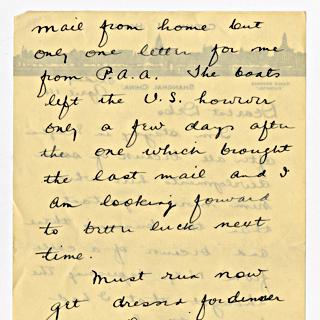 mail from home but
only one letter for me
from P.A.A. The boats
left the U.S. however
only a few days after
the one which brought
the last mail and I
am looking forward
to better luck next
time.
Must run now
get dressed for dinner